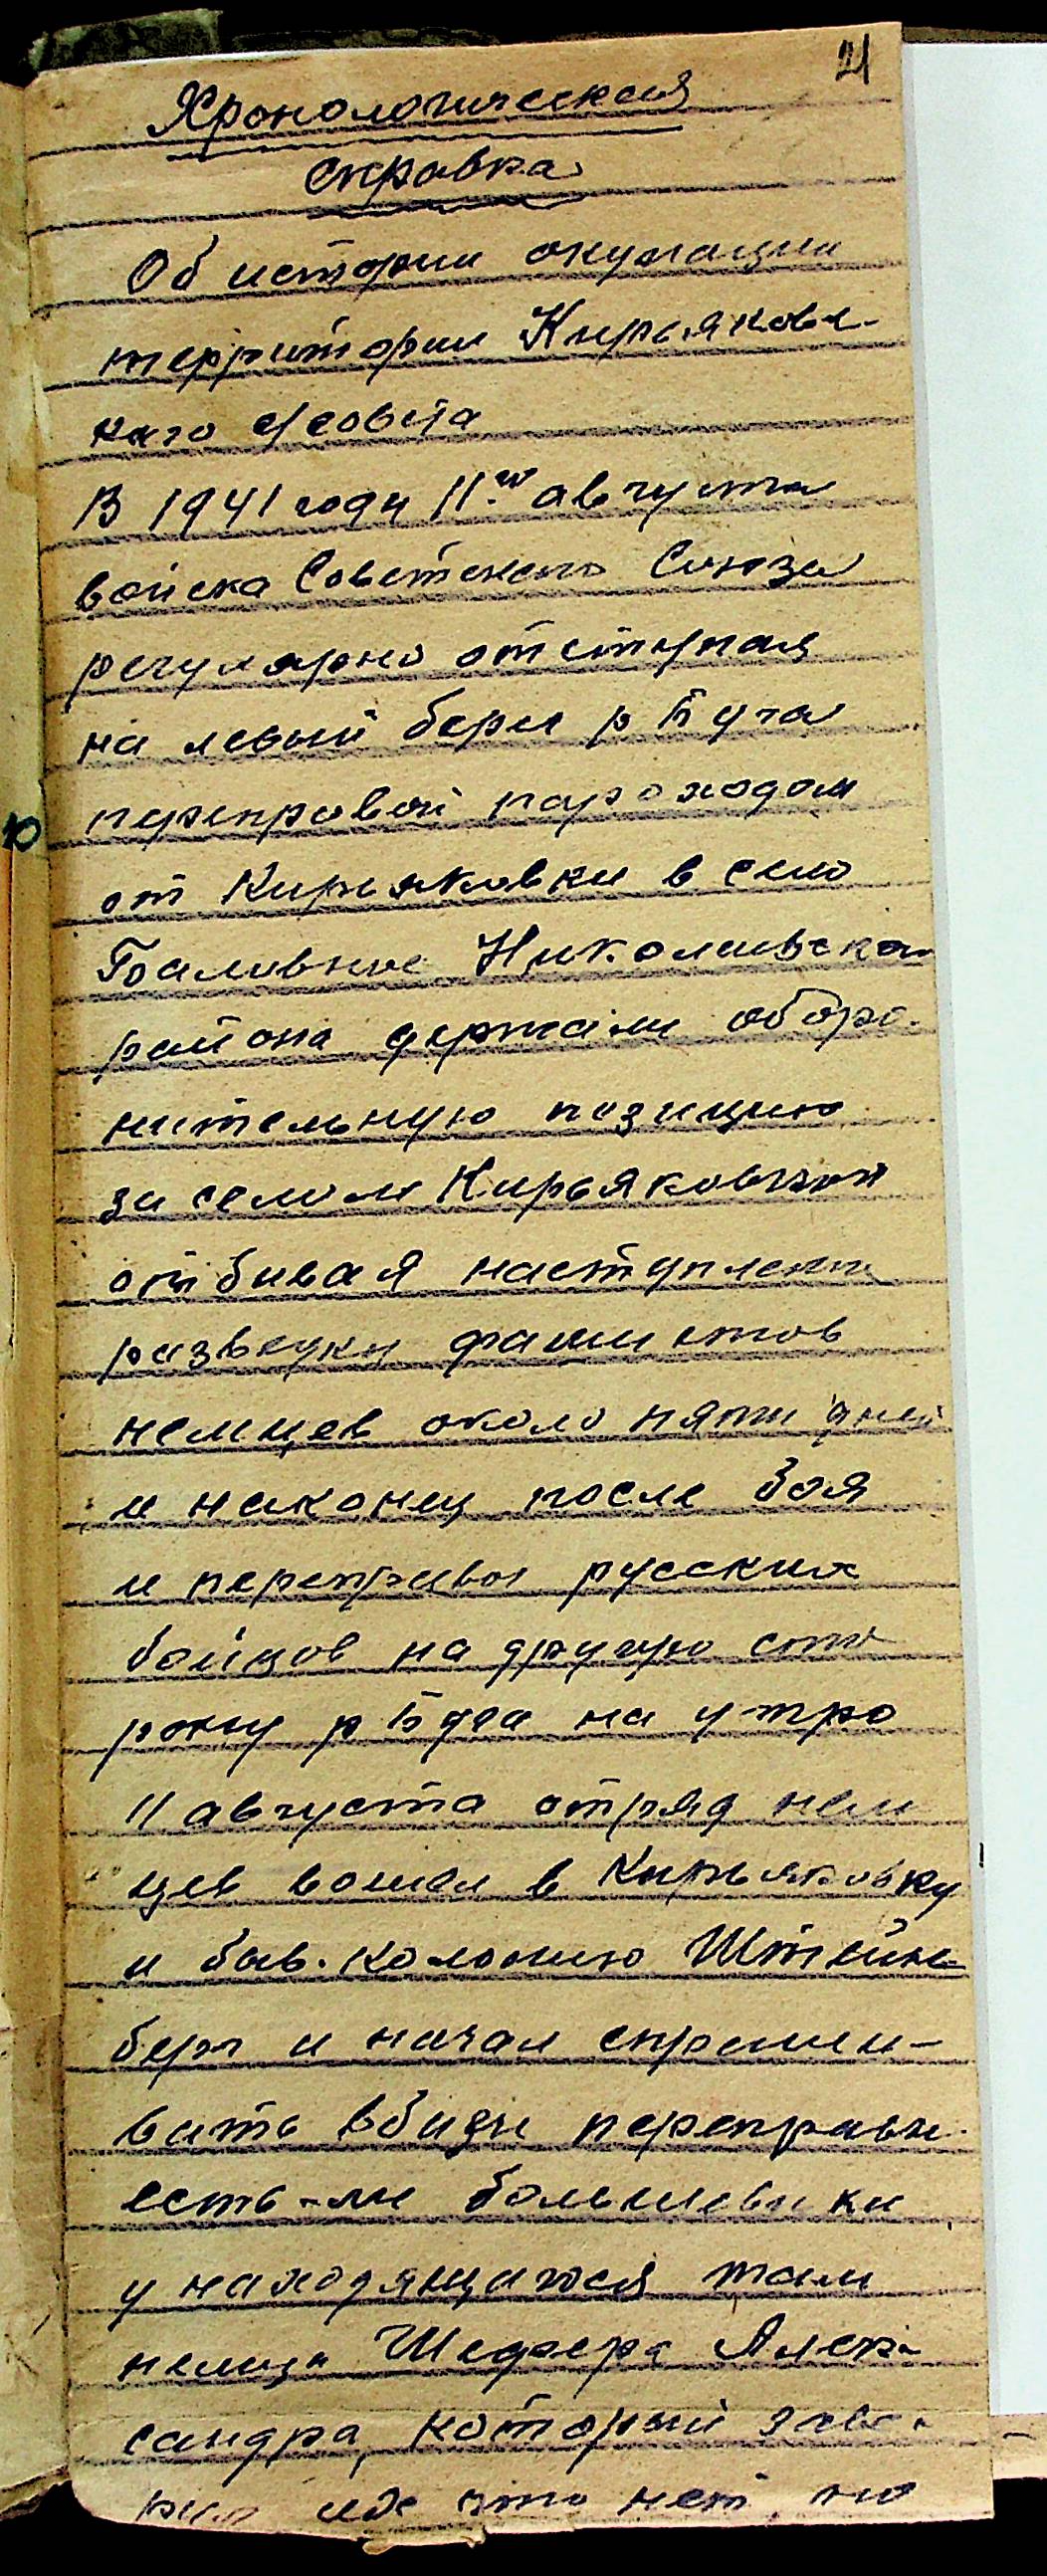 21
Хронологическая
справка
Об истории окупации
территории Кирьяковс-
каго с/совета
В 1941 году 11го августа
войска Советского Союза
регулярно отступая
на левый берег р Буга
переправой пароходом
от Кирьяковки в село
Баловное Николаевского
района держали оборо-
нительную позицию
за селом Кирьяковкой
отбивая наступления
разведки фашистов
немцев около пяти дней
и наконец после боя
и переправы русских
бойцов на другую сто
рону р Буга на утро
11 августа отряд нем
цев вошел в Кирьяковку
и быв. колонию Штейн-
берг и начал спраши-
вать вблизи переправы
есть-ли большевики
у находящигося там
немца Шефера Алек-
сандра, который
что нет, но